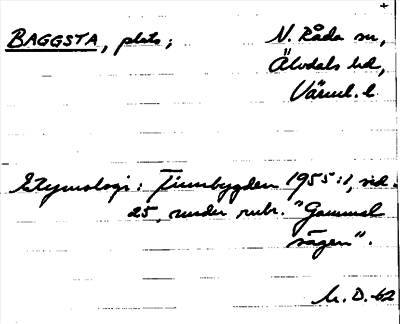 BAGGSTA, plats; N. Råda sn,
Älvdals hd,
Värml. l.
Etymologi: Finnbygden 1955:1, sid.
25, under rubr. "Gammal
sägen".
M.D.-62